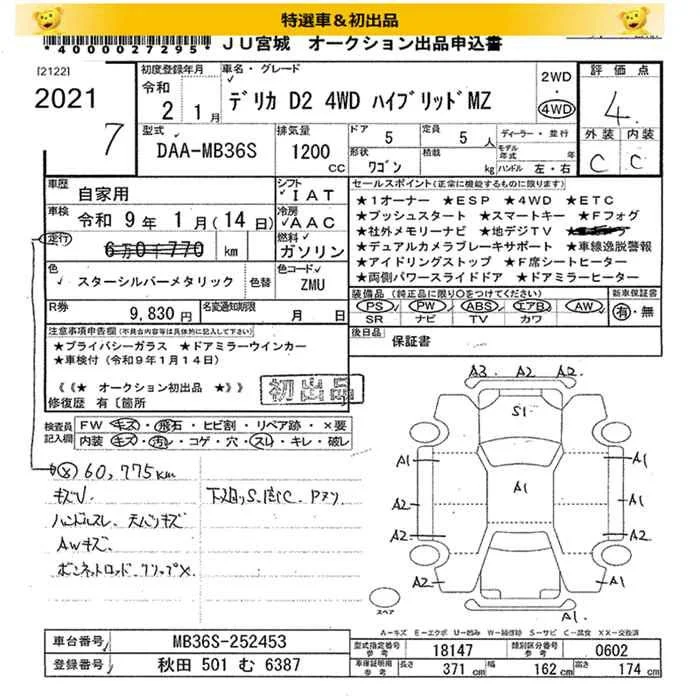 特選車＆初出品
*4000027295*
ＪＵ宮城 オークション出品申込書
[2122]
2021
7
初度登録年月
令和
2年 1月
車名・グレード
デリカ D2 4WD ハイブリッドMZ
2WD
・
4WD
評価点
4
外装 内装
C C
型式
DAA-MB36S
排気量
1200
CC
ドア 5
定員 5人
形状 ワゴン
積載 kg
ディーラー・並行
モデル年式 年
ハンドル 左・右
車歴
自家用
シフト
IAT
車検
令和 9年 1月(14日)
冷房
AAC
走行
6万0千770 km
燃料
ガソリン
色
スターシルバーメタリック
色替
色コード
ZMU
R券
9,830円
名変通知期限
月 日
セールスポイント(正常に機能するものに限ります)
★1オーナー ★ESP ★4WD ★ETC
★プッシュスタート ★スマートキー ★Fフォグ
★社外メモリーナビ ★地デジTV
★デュアルカメラブレーキサポート ★車線逸脱警報
★アイドリングストップ ★F席シートヒーター
★両側パワースライドドア ★ドアミラーヒーター
装備品 (純正品に限り○をつけてください)
PS PW ABS エアB AW
SR ナビ TV カワ
新車保証書
有・無
後日品
保証書
注意事項申告欄(不具合内容等は具体的に記入して下さい)
★プライバシーガラス ★ドアミラーウインカー
★車検付(令和9年1月14日)
《《★ オークション初出品 ★》》
初出品
修復歴 有〔箇所
検査員記入欄
FW キズ・飛石・ヒビ割・リペア跡・×要
内装 キズ・汚レ・コゲ・穴・スレ・キレ・破レ
㊀ 60,775km
キズU
下廻りS.腐C.
ハンドルスレ 天バリキズ
AWキズ
ボンネットロッド クリップ×
A3 A2 A2
S1
A1 A1 A1
A2 A2
A2 A1
A1
スペア
A－キズ E－エクボ U－凹み W－補修跡 S－サビ C－腐食 XX－交換済
車台番号
MB36S-252453
登録番号
秋田 501 む 6387
型式指定番号 参考
18147
類別区分番号 参考
0602
車体証明用 参考
長さ 371 cm
幅 162 cm
高さ 174 cm